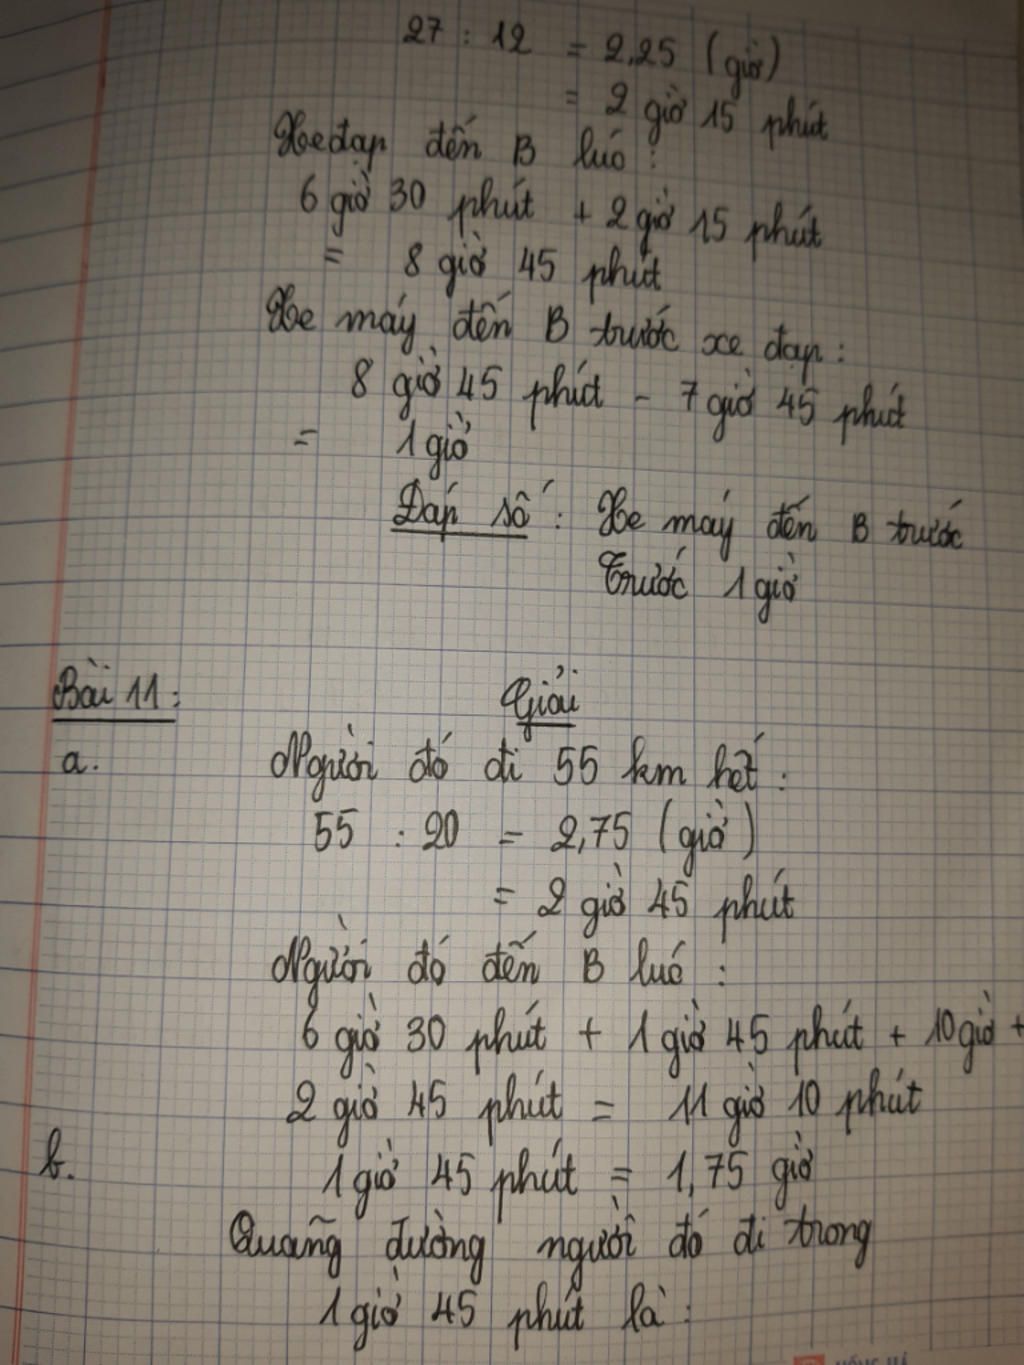 27 : 12 = 2,25 (giờ)
= 2 giờ 15 phút
Xe đạp đến B lúc :
6 giờ 30 phút + 2 giờ 15 phút
= 8 giờ 45 phút
Xe máy đến B trước xe đạp :
8 giờ 45 phút - 7 giờ 45 phút
= 1 giờ
Đáp số : Xe máy đến B trước
Trước 1 giờ
Bài 11 : Giải
a. Người đó đi 55 km hết :
55 : 20 = 2,75 (giờ)
= 2 giờ 45 phút
Người đó đến B lúc :
6 giờ 30 phút + 1 giờ 45 phút + 10 giờ +
2 giờ 45 phút = 11 giờ 10 phút
b. 1 giờ 45 phút = 1,75 giờ
Quãng đường người đó đi trong
1 giờ 45 phút là :